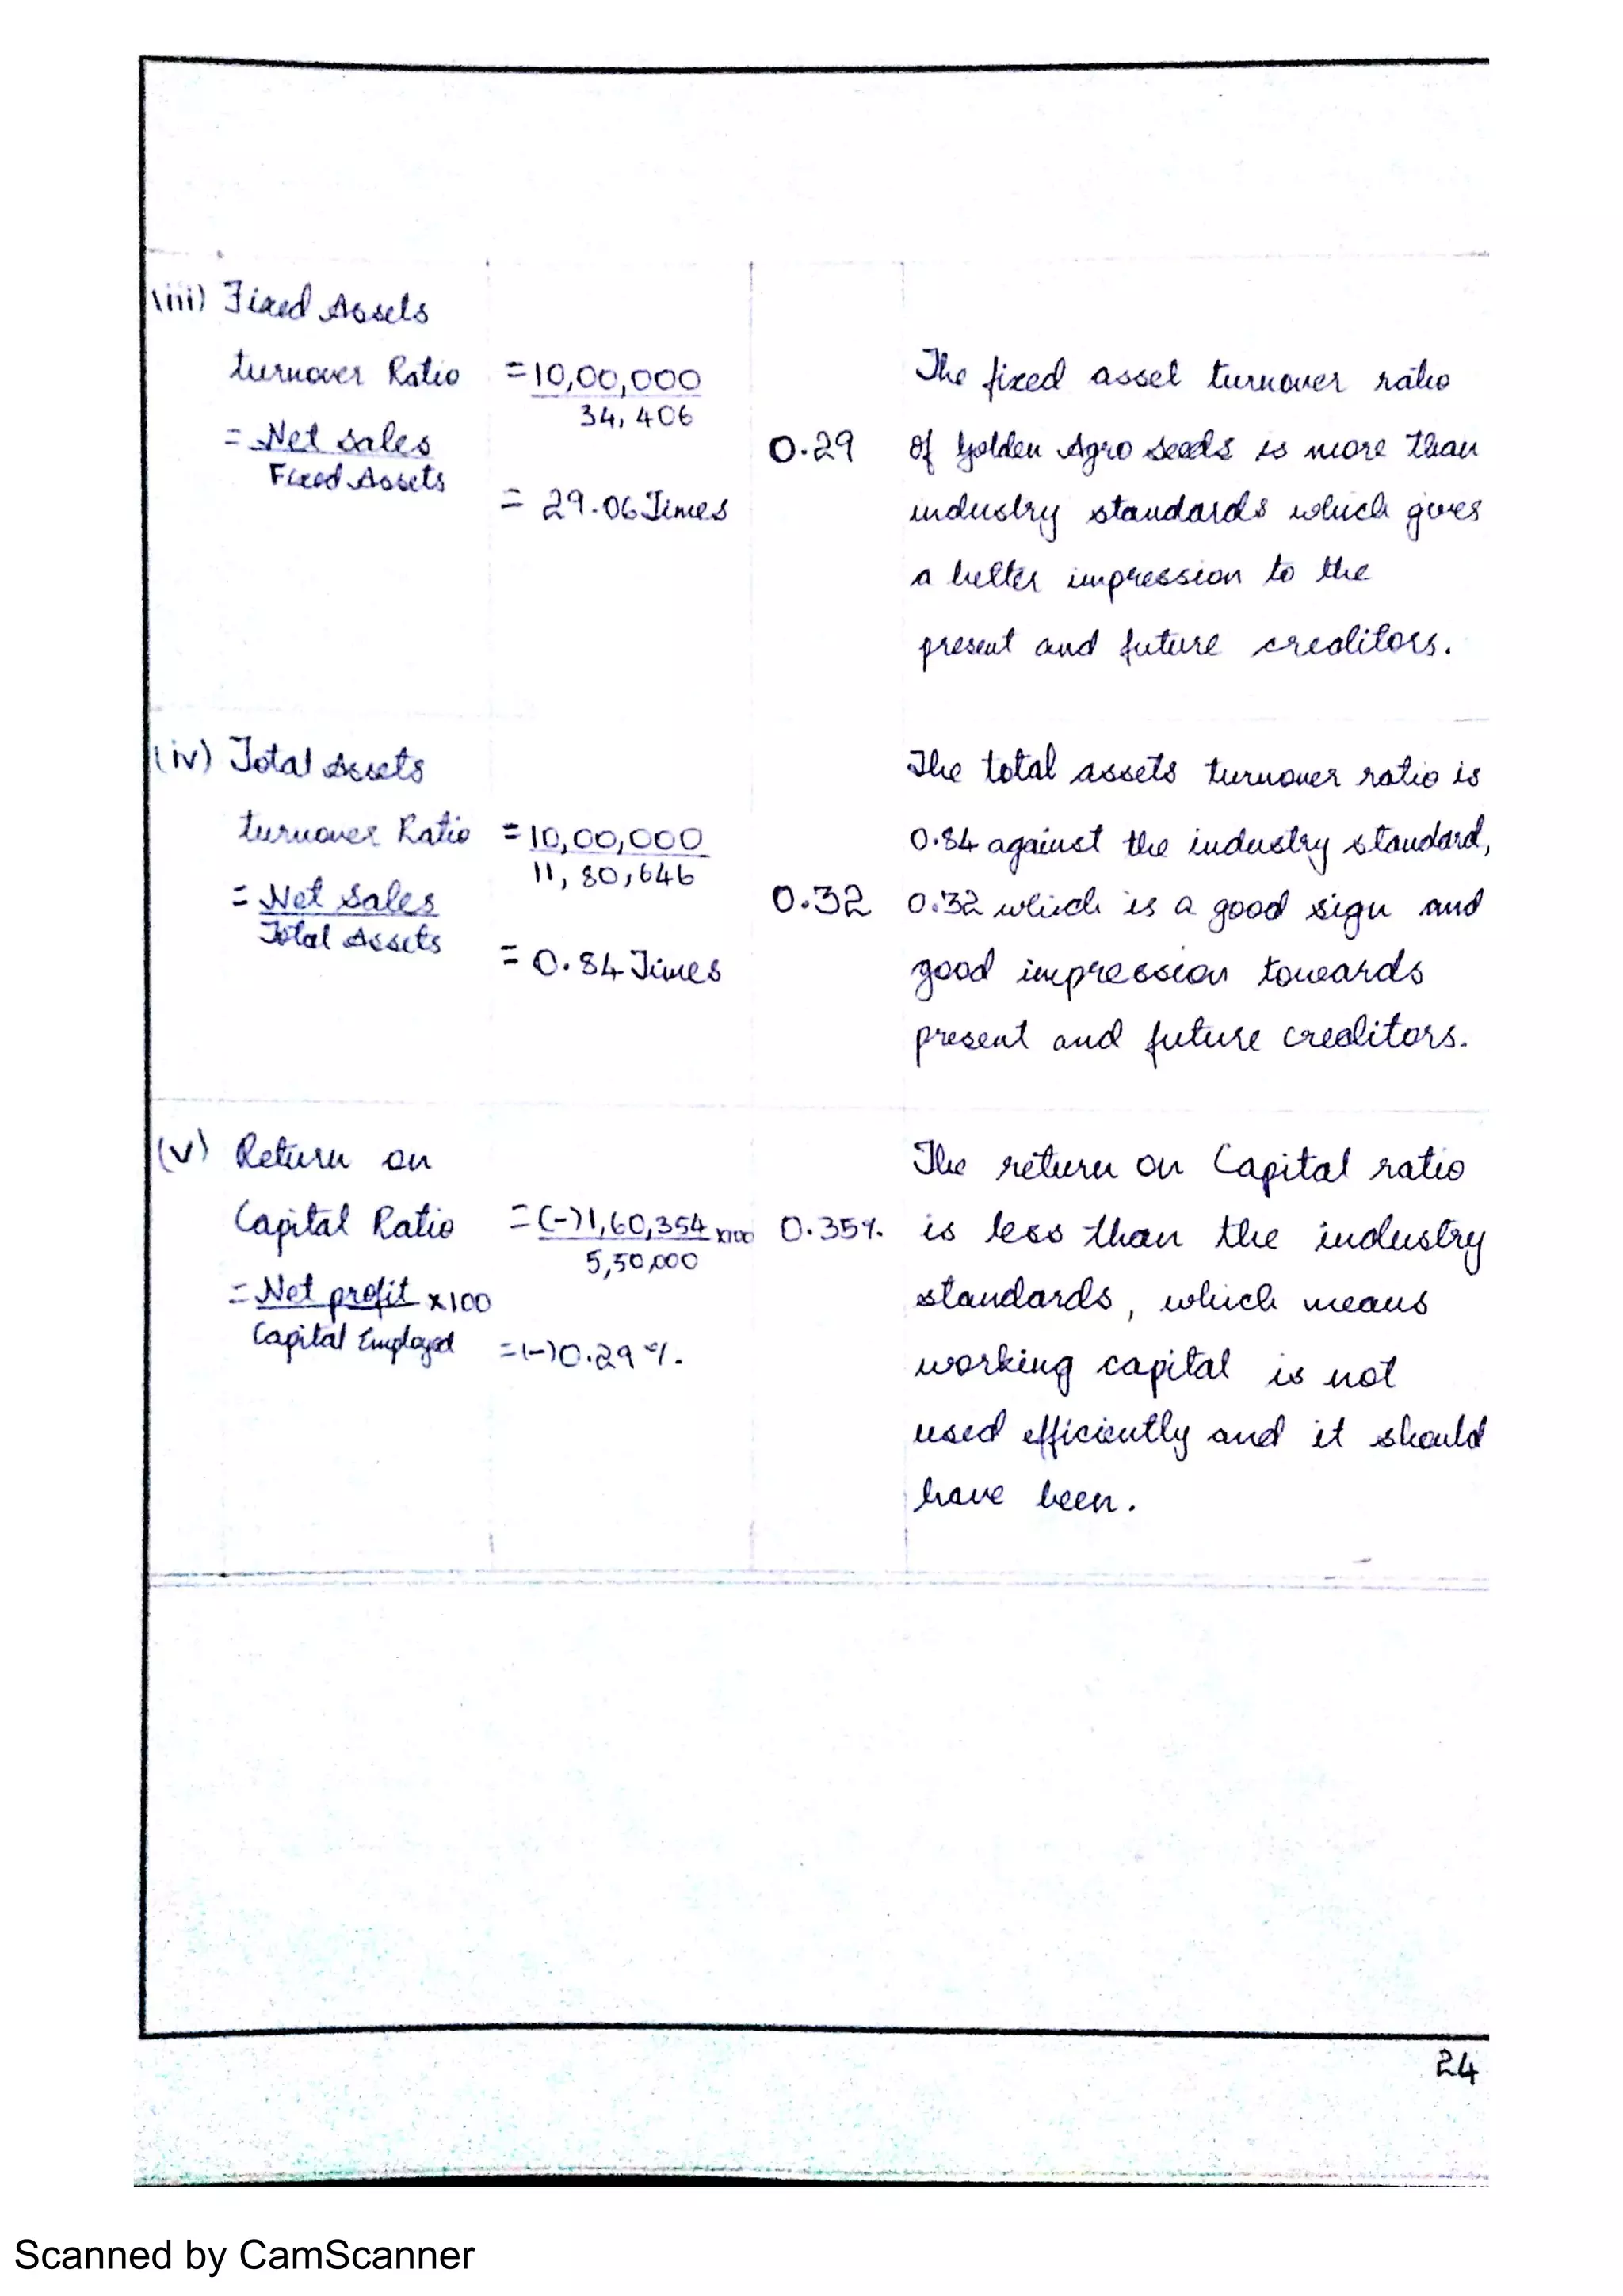 (iii) Fixed Assets
turnover Ratio
= Net Sales
Fixed Assets
= 10,00,000
34,406
= 29.06 Times
0.29
The fixed asset turnover ratio
of Golden Agro seeds is more than
industry standards which gives
a better impression to the
present and future creditors.
(iv) Total Assets
turnover Ratio
= Net Sales
Total Assets
= 10,00,000
11,80,646
= 0.84 Times
0.32
The total assets turnover ratio is
0.84 against the industry standard,
0.32 which is a good sign and
good impression towards
present and future creditors.
(v) Return on
Capital Ratio
= Net profit x100
Capital Employed
= (-)1,60,354 x100
5,50,000
= (-)0.29%.
0.35%.
The return on Capital ratio
is less than the industry
standards, which means
working capital is not
used efficiently and it should
have been.
24
Scanned by CamScanner